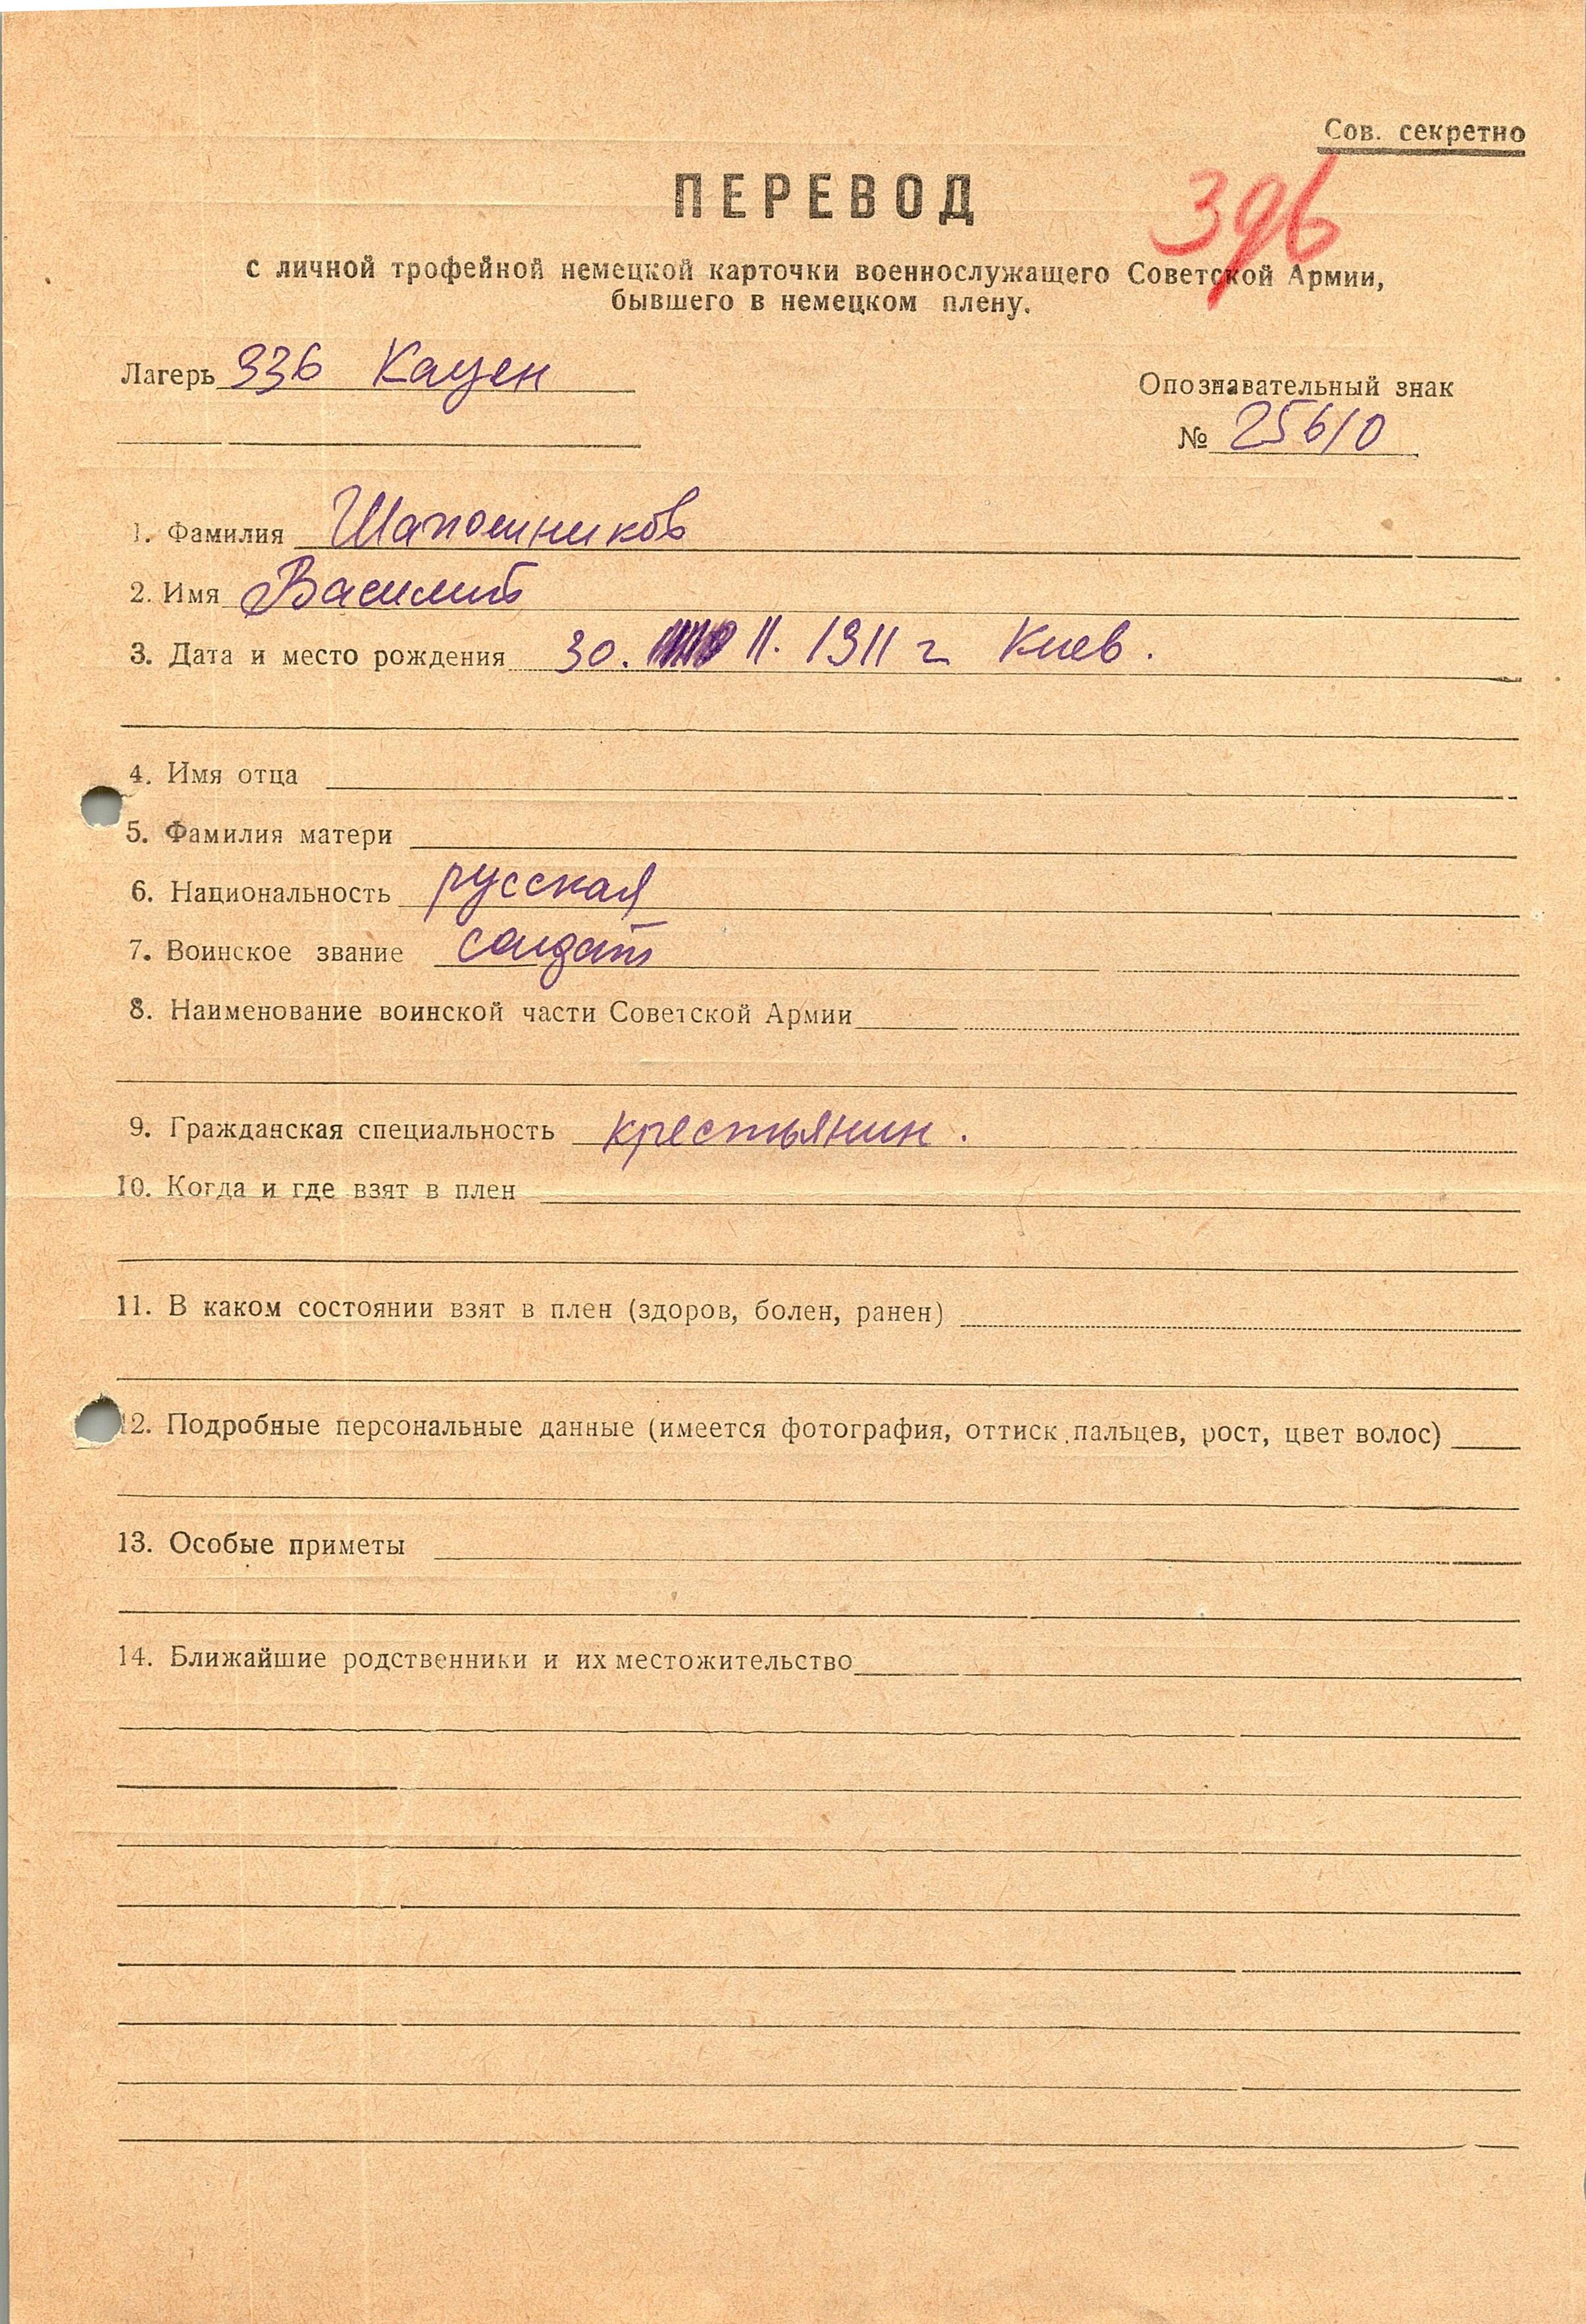 Сов. секретно
ПЕРЕВОД
с личной трофейной немецкой карточки военнослужащего Советской Армии,
бывшего в немецком плену.
Лагерь 336 Кауен
Опознавательный знак
№ 25610
1. Фамилия Шапошников
2. Имя Василий
3. Дата и место рождения 30. 11. 1911 г Киев.
4. Имя отца
5. Фамилия матери
6. Национальность русская
7. Воинское звание солдат
8. Наименование воинской части Советской Армии
9. Гражданская специальность крестьянин.
10. Когда и где взят в плен
11. В каком состоянии взят в плен (здоров, болен, ранен)
12. Подробные персональные данные (имеется фотография, оттиск пальцев, рост, цвет волос)
13. Особые приметы
14. Ближайшие родственники и их местожительство